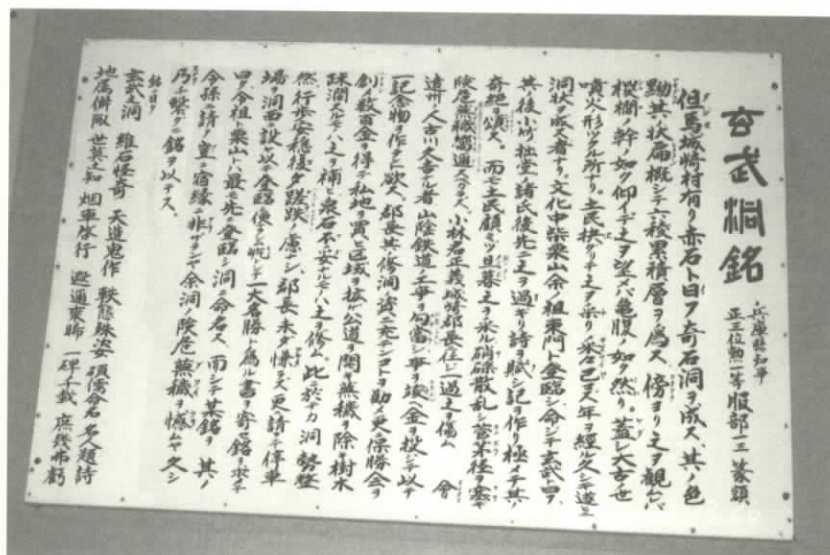 玄武洞銘
兵庫縣知事
正三位勲一等服部一三篆額
但馬城崎村有リ赤石ト曰フ奇石洞ヲ成ス、其ノ色
黝其ノ状扁概シテ六稜累積層ヲ為ス、傍ヨリ之ヲ観レバ
椶櫚ノ幹ノ如ク仰ギテ之ヲ望メバ亀腹ノ如ク然リ。蓋シ大古ノ世
噴火ノ形ヅクル所ナリ。土民之ヲ采リ年ヲ経ル久シ遂ニ
洞状ヲ成ス者ナリ。文化中柴栗山余ノ祖東門ト登臨シ、命ジテ玄武ト曰フ、
其ノ後小竹拙堂諸氏後先之ヲ過ギリ詩ヲ賦シ記ヲ作リ極メテ其ノ
奇絶ヲ頌ス。而モ土民顧ミズ旦暮之ヲ采ル碩礫散乱シ
険危蕪穢ス、小林君正義城崎郡長任ジ過ギ之ヲ傷ム 會
遠州ノ人古川久吉ナル者山陰鉄道ノ工事ヲ勾當シ事竣ハル金ヲ投ジテ以テ
一記念物ヲ作ラント欲ス。郡長其ノ修洞ノ資ニ充テンコトヲ勧メ更ニ保勝会ヲ
創メ数百金ヲ得テ私地ヲ買ヒ区域ヲ拡ゲ公道ヲ開キ蕪穢ヲ除キ樹木
疎濶ナルモノハ之ヲ補ヒ衆石不安ナルモノハ之ヲ修ム。此ニ於テカ洞勢整
然行歩安穏復タ蹉跌ノ慮ナシ、郡長未ダ慊ラズ更ニ請ヒテ停車
場ヲ洞西ニ設ケ以テ登臨ニ便ニス一大名勝ト為ル書ヲ寄セ銘ヲ求メテ
曰ク令祖ト栗山トハ最モ先ニ登臨シ洞ニ命名ス、而シテ其ノ銘ヲ其ノ
令孫ニ請フ豈ニ宿縁ニ非ザランヤ余洞ノ険危蕪穢ヲ憾ムヤ久シ
乃チ繋グニ銘ヲ以テス。
銘ニ曰ク
玄武之洞 維石怪奇 天造鬼作 軼態殊姿 碩儒命名 名人題詩
地属僻陬 世莫之知 烟車啓行 遐邇來眎 一碑千載 庶幾弗虧